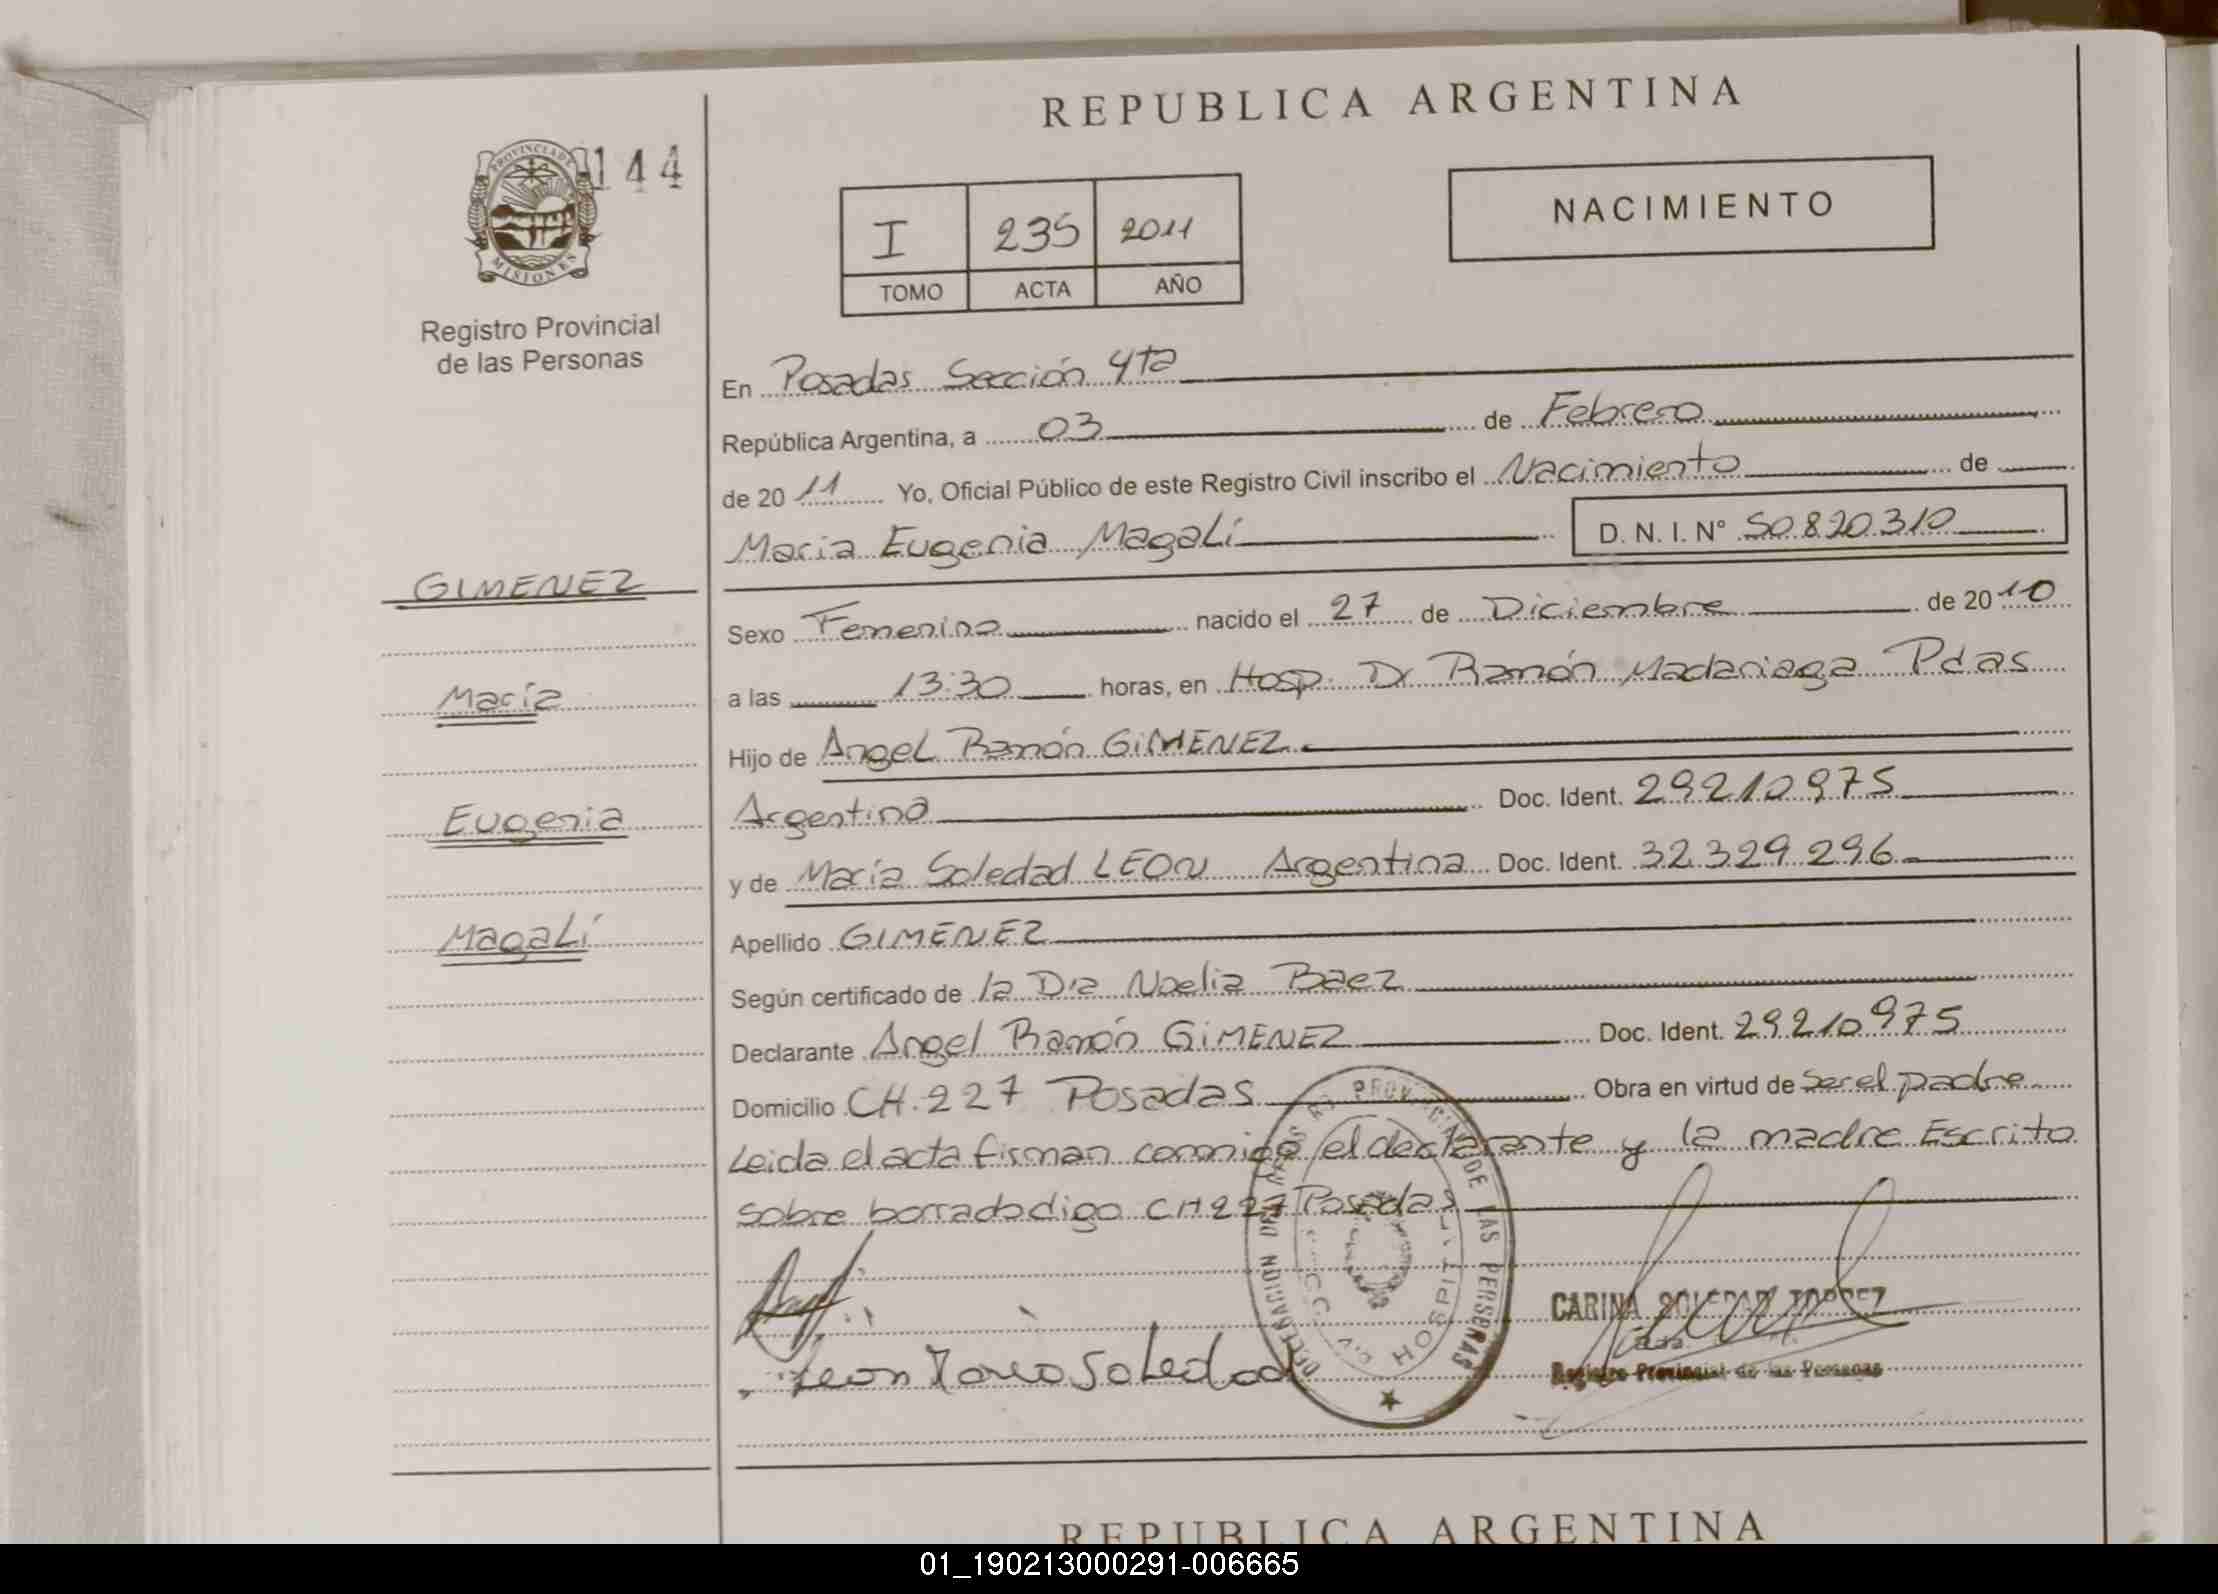 REPUBLICA ARGENTINA
PROVINCIA DE
MISIONES
144
Registro Provincial
de las Personas
I 235 2011
TOMO ACTA AÑO
NACIMIENTO
En Posadas Sección 4ta
República Argentina, a 03 de Febrero
de 2011 Yo, Oficial Público de este Registro Civil inscribo el Nacimiento de
Maria Eugenia Magalí D. N. I. N° 50.820.310
GIMENEZ
María
Eugenia
Magalí
Sexo Femenino nacido el 27 de Diciembre de 2010
a las 13:30 horas, en Hosp. Dr Ramón Madariaga Pdas
Hijo de Angel Ramón GIMENEZ
Argentino Doc. Ident. 29210975
y de María Soledad LEON Argentina Doc. Ident. 32.329.296
Apellido GIMENEZ
Según certificado de la Dra Noelia Baez
Declarante Angel Ramón GIMENEZ Doc. Ident. 29210975
Domicilio CH. 227 Posadas Obra en virtud de ser el padre
Leida el acta firman conmigo el declarante y la madre Escrito
sobre borrado digo CH 227 Posadas
Leon Maria Soledad
PROVINCIAL DE LAS PERSONAS
HOSPIT
CARINA SOLEDAD TORREZ
Registro Provincial de las Personas
REPUBLICA ARGENTINA
01_190213000291-006665